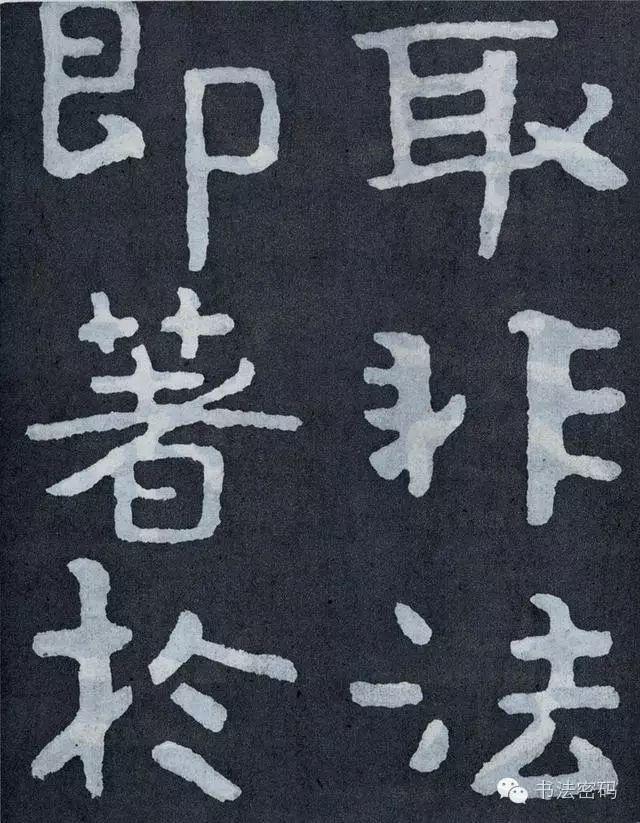 取非法
即著於
书法密码